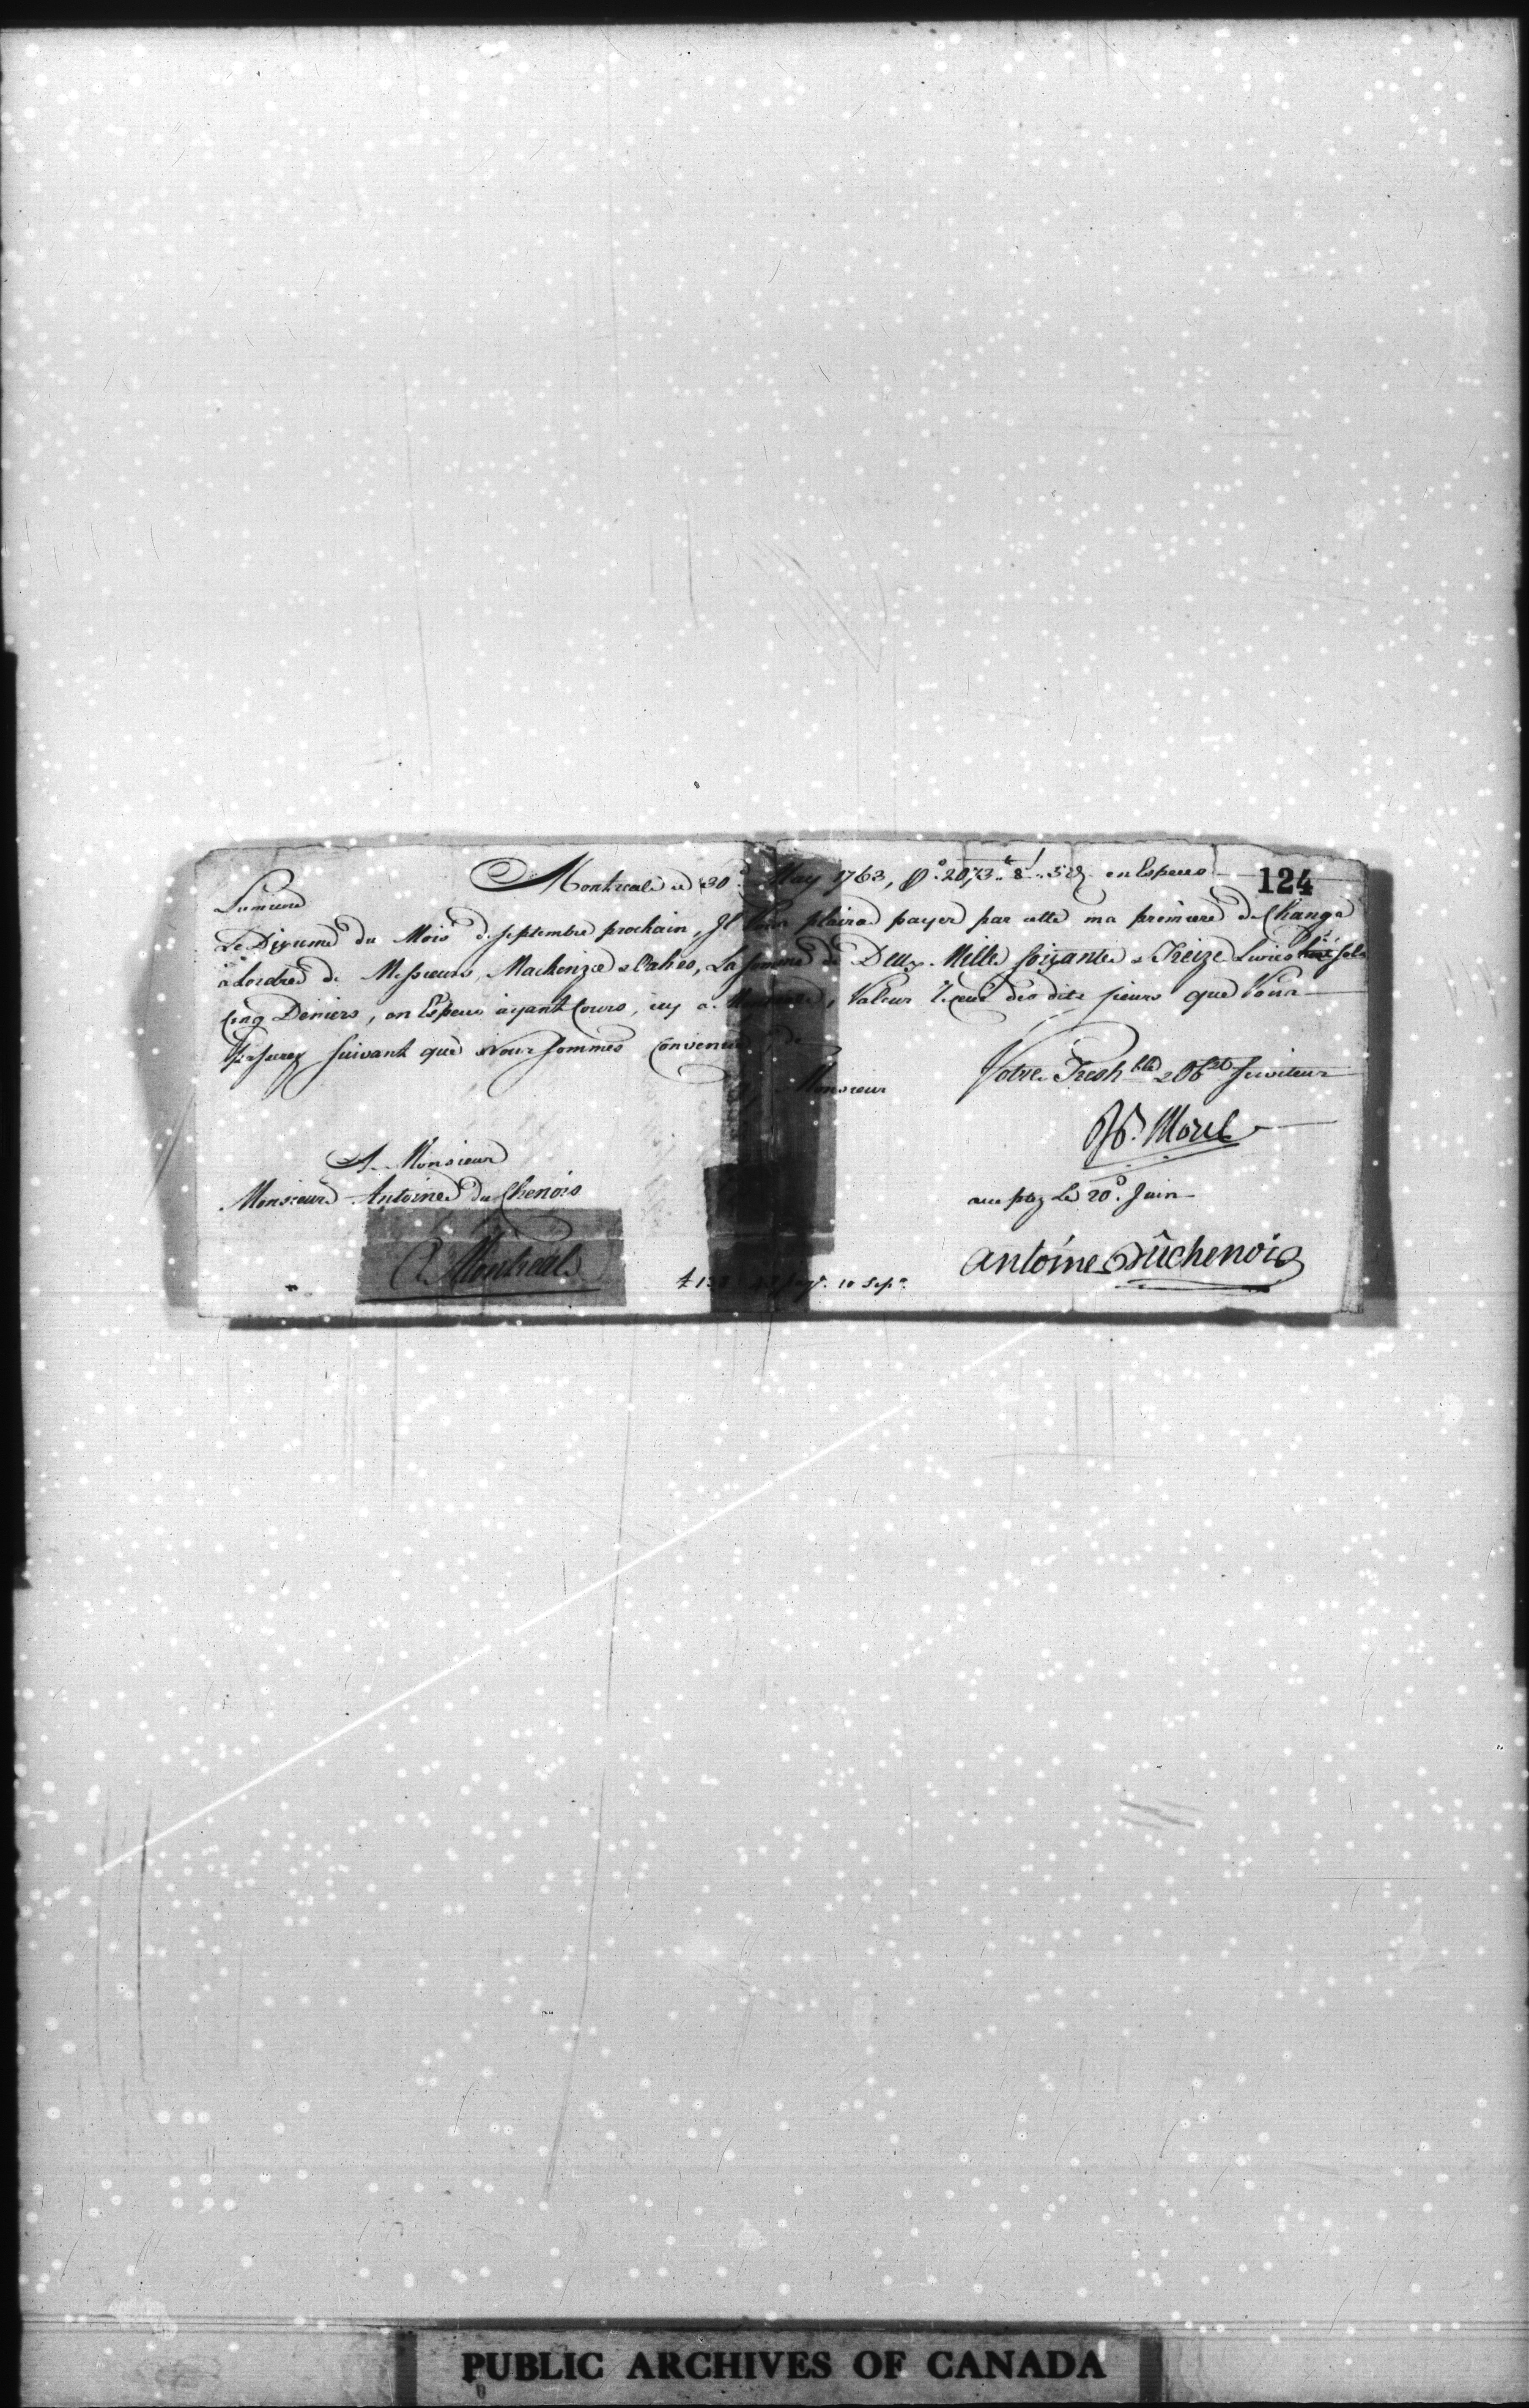 Montreal le 30.e May 1763, P.o 2073.tt 8.s 5 d. en Especes
124
Premiere
Le Dixieme du Mois de Septembre prochain, Il Vous plaira payer par cette ma premiere de Change
à Lordre de Messieurs, Mackenzie & Oakes, La somme de Deux Mille soixante & Treize Livres huit sols
Cinq Deniers, en Especes ayant Cours, icy a Montreal, Valeur Reçeue des dits sieurs que Vous
suivant que Nous sommes Convenus, de
Monsieur
Votre Tresh ble & Obt Serviteur
Morel
A Monsieur
Monsieur Antoine du Chenois
A Montreal
acceptez Le 20.e Juin
antoine Dûchenois
10 Sepr.
PUBLIC ARCHIVES OF CANADA